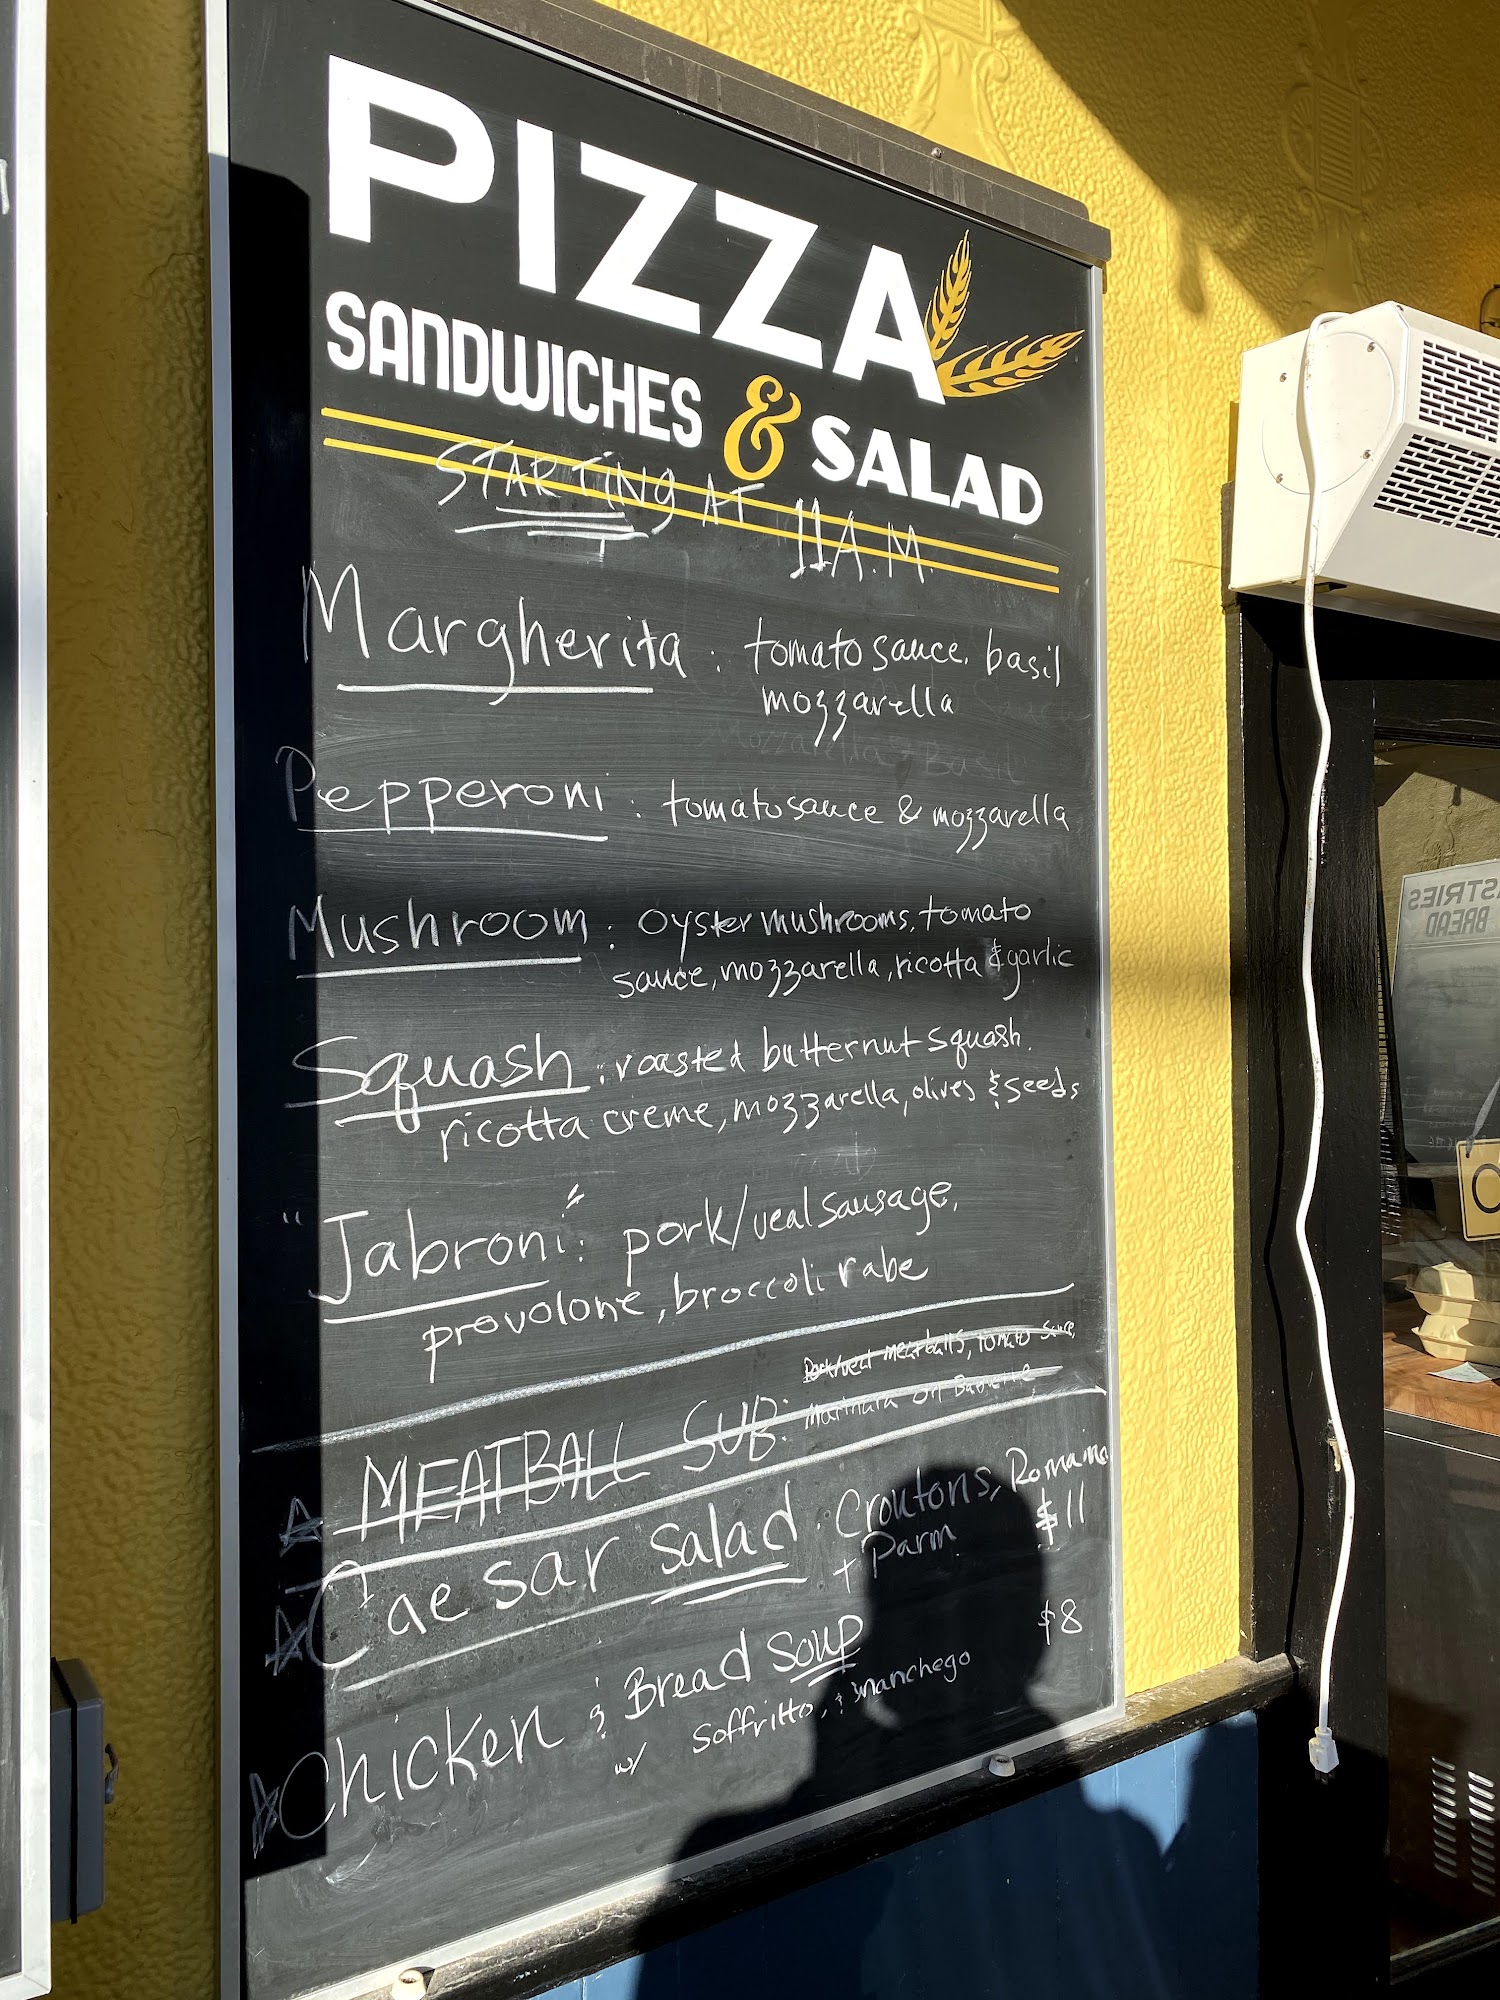 PIZZA
SANDWICHES & SALAD
STARTING AT 11A.M.
Margherita : tomato sauce, basil
mozzarella
Mozzarella + Basil
Pepperoni : tomato sauce & mozzarella
Mushroom : oyster mushrooms, tomato
sauce, mozzarella, ricotta & garlic
Squash : roasted butternut squash,
ricotta creme, mozzarella, olives & seeds
"Jabroni" : pork/veal sausage,
provolone, broccoli rabe
MEATBALL SUB: Pork/veal meatballs, tomato sauce,
Marinara on Baguette
Caesar Salad : Croutons, Romaine
+ Parm $11
Chicken & Bread Soup $8
w/ Soffritto, & manchego
STRIES
BREAD